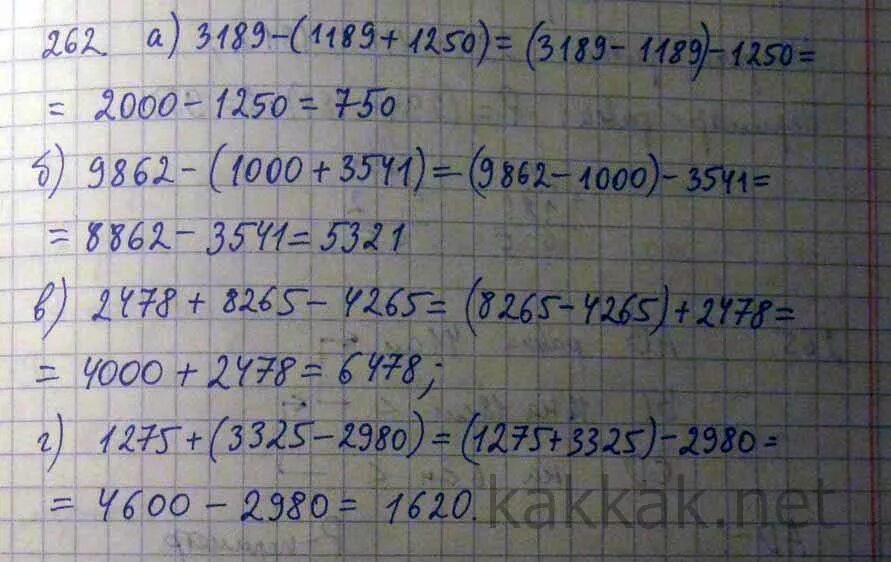 262 а) 3189-(1189+1250)=(3189-1189)-1250=
= 2000-1250=750
б) 9862-(1000+3541)=(9862-1000)-3541=
= 8862-3541=5321
в) 2478+8265-4265=(8265-4265)+2478=
= 4000+2478=6478;
г) 1275+(3325-2980)=(1275+3325)-2980=
= 4600-2980= 1620.
kakkak.net